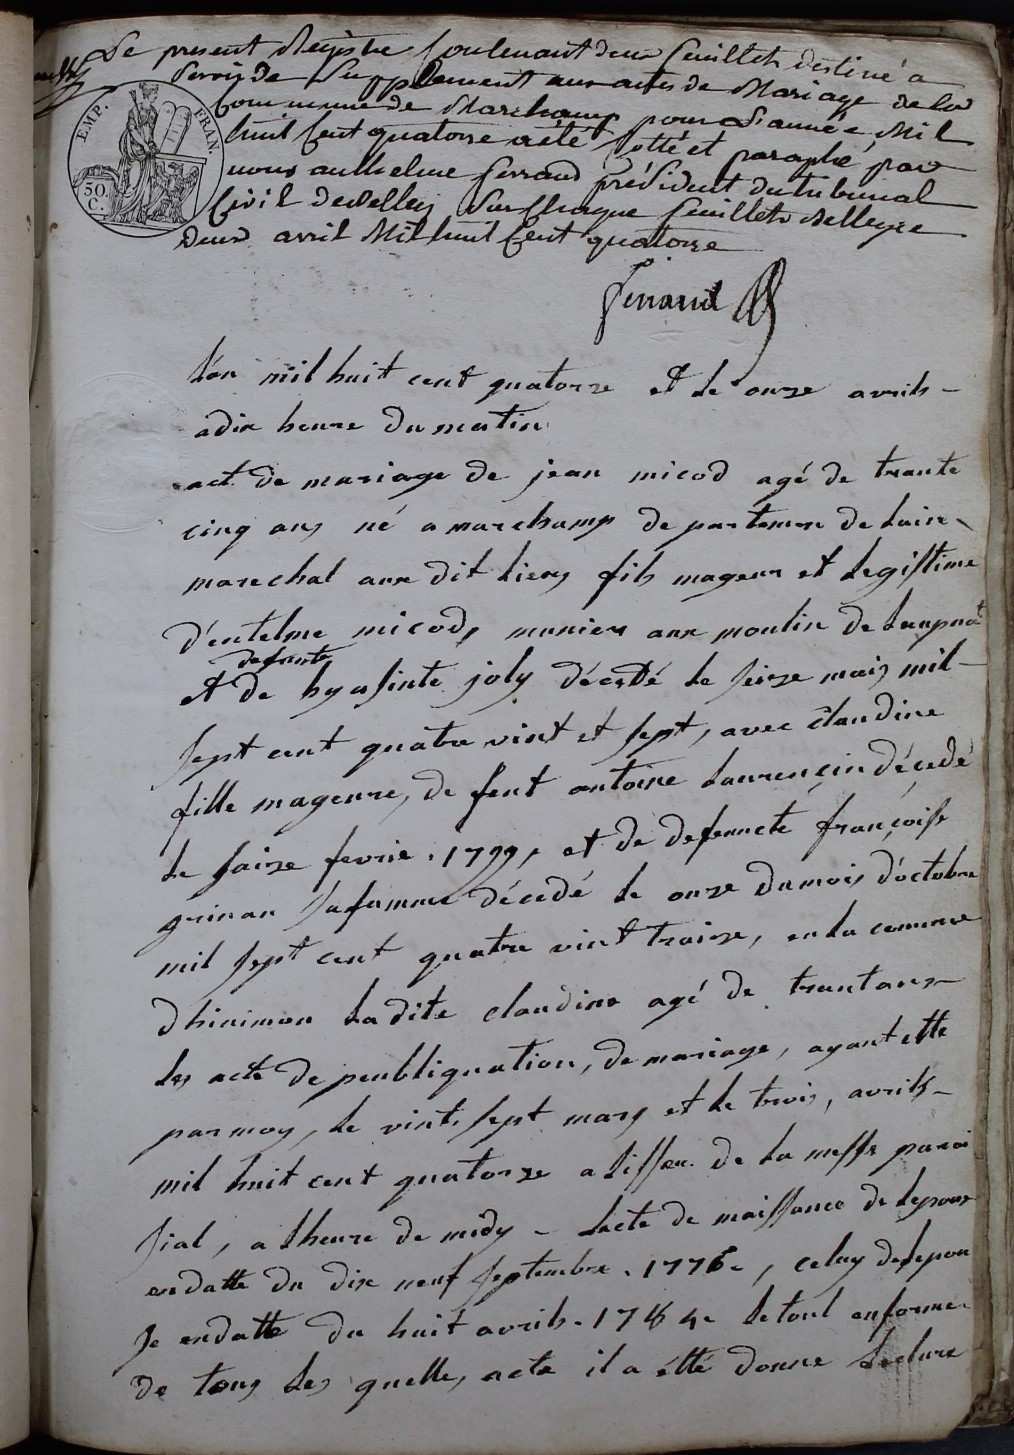 Le present Registre Contenant deux feuillets destiné a
Servir de Supplement aux actes de Mariage de la
Commune de Marchamp pour L'année Mil
huit Cent quatorze a été Cotté et paraphé par
nous anthelme ferrand président du tribunal
Civil de Belley Sur Chaque feuillets Belley le
deux avril Mil huit Cent quatorze
EMP. FRAN.
50 C.
ferrand
L'an mil huit cent quatorze et le onze avrils
a dix heure du matin
act de mariage de jean micod agé de trante
cinq ans né a marchamp de partemen de Lain
marechal aux dit Lieus fils mageur et Legistime
d'entelme micod, munier aux moulin de
defunte
et de hyasinte joly décédé le seize mais mil
sept cent quatre vint et sept, avec claudine
fille mageure, de feut antoine Laurençin décedé
le saize fevrie 1799, et de defuncte françoise
grinan sa famme décédé le onze du mois d'octobre
mil sept cent quatre vint traize, en la comune
dhinimon La dite claudine agé de trantans
les acte de peubliquation, de mariage, ayant ette
par moy, le vint sept mars et le trois, avrils
mil huit cent quatorze a Lisseu de La messe paroi
sial, a Lheure de midy - Lacte de naissance de Lepoux
en datte du dix neuf septembre 1778, celuy de lepou
se en datte du huit avrils 1784 Le tout en forme
de tous Les quelle, acte il a étté donné Lecture